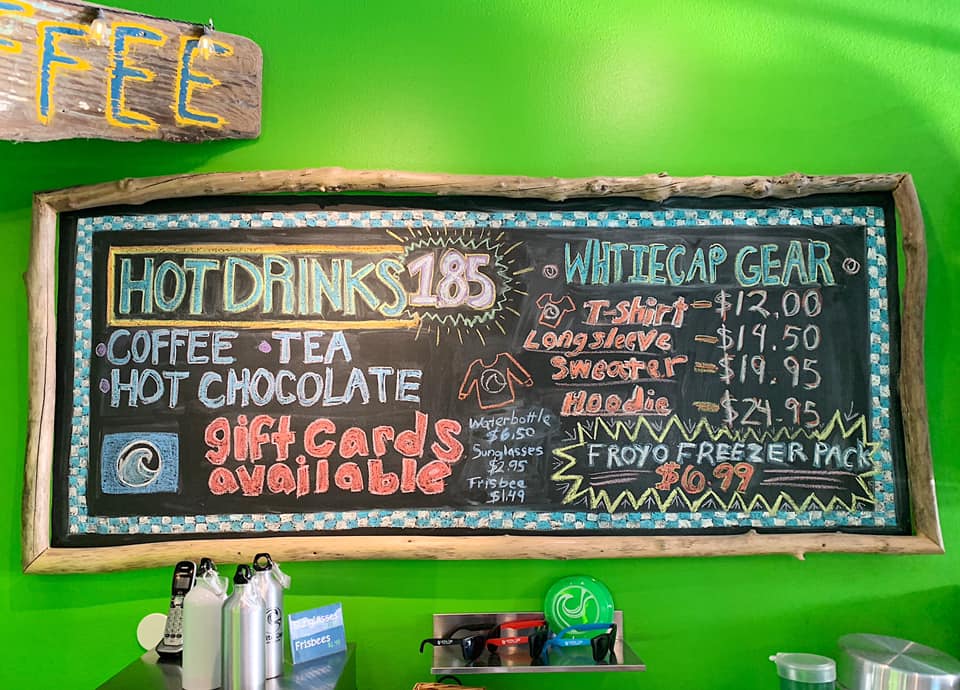 FFEE
HOT DRINKS 185
COFFEE TEA
HOT CHOCOLATE
gift cards
available
Waterbottle
$6.50
Sunglasses
$2.95
Frisbee
$1.49
WHTIECAP GEAR
T-Shirt - $12.00
Longsleeve - $14.50
Sweater - $19.95
Hoodie - $24.95
FROYO FREEZER PACK
$6.99
Sunglasses
Frisbees